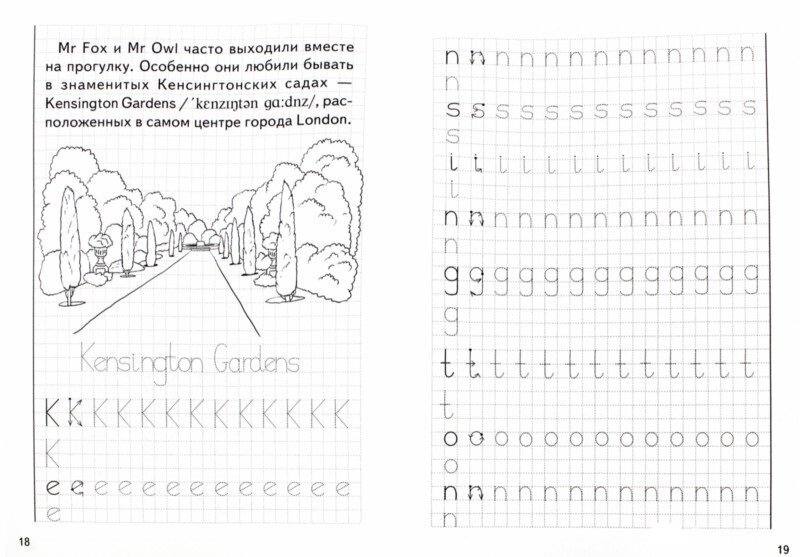 Mr Fox и Mr Owl часто выходили вместе
на прогулку. Особенно они любили бывать
в знаменитых Кенсингтонских садах —
Kensington Gardens /ˈkɛnzɪŋtən gɑːdnz/, рас-
положенных в самом центре города London.
Kensington Gardens
K K K K K K K K K K K K K
K
e e e e e e e e e e e e e
e
18
n n n n n n n n n n n n n
n
s s s s s s s s s s s s s
s
i i i i i i i i i i i i i
i
n n n n n n n n n n n n n
n
g g g g g g g g g g g g g
g
t t t t t t t t t t t t t
t
o o o o o o o o o o o o o
o
n n n n n n n n n n n n n
n
19